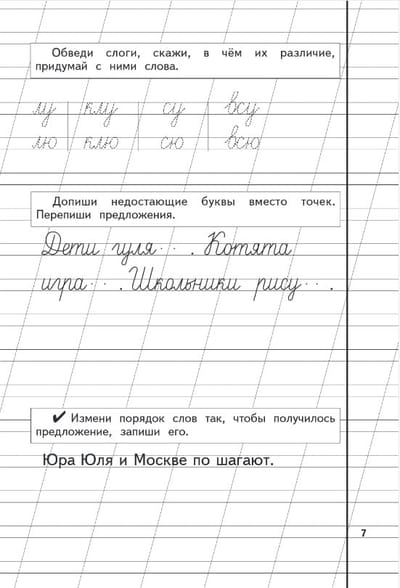 Обведи слоги, скажи, в чём их различие,
придумай с ними слова.
лу клу су всу
лю клю сю всю
Допиши недостающие буквы вместо точек.
Перепиши предложения.
Дети гуля· · . Котята
игра· · . Школьники рису· · .
✔ Измени порядок слов так, чтобы получилось
предложение, запиши его.
Юра Юля и Москве по шагают.
7